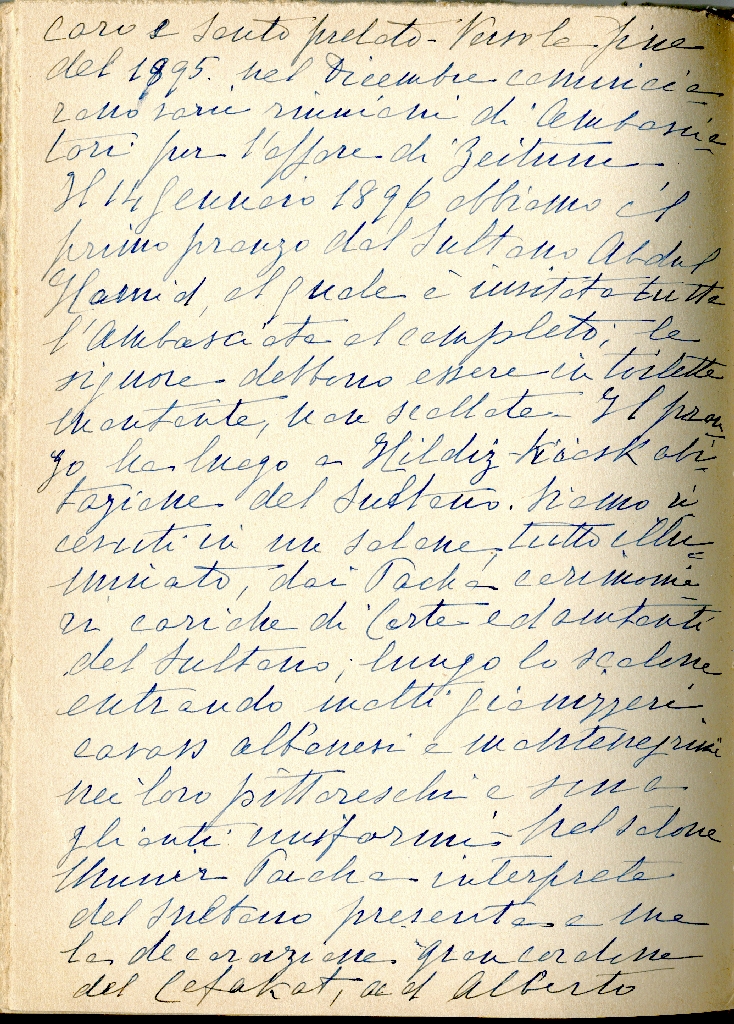 caro e santo prelato - Verso la fine
del 1895. nel Dicembre comincia=
rono varie riunioni di Ambascia=
tori per l'affare di Zeitun
Il 14 Gennaio 1896 abbiamo il
primo pranzo dal Sultano Abdul
Hamid, al quale è invitata tutta
l'Ambasciata al completo; le
signore debbono essere in toilette
montante, non scollate - Il pran=
zo ha luogo a Hildiz-Kiosk abi=
tazione del Sultano. Siamo ri
cevuti in un salone, tutto illu=
minato, dai Pacha cerimonie=
ri cariche di Corte ed aiutanti
del Sultano; lungo lo scalone
entrando molti gianizzeri
cavass albanesi e montenegrini
nei loro pittoreschi e sma
glianti uniformi - Nel salone
Munir Pacha interprete
del Sultano presenta a me
la decorazione gran cordone
del Cefakat, ad Alberto